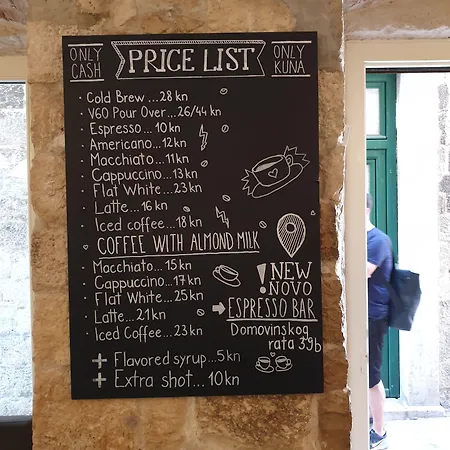 ONLY CASH
PRICE LIST
ONLY KUNA
Cold Brew...28 kn
V60 Pour Over...26/44 kn
Espresso...10 kn
Americano...12 kn
Macchiato...11 kn
Cappuccino...13 kn
Flat White...23 kn
Latte...16 kn
Iced coffee...18 kn
COFFEE WITH ALMOND MILK
Macchiato...15 kn
Cappuccino...17 kn
Flat White...25 kn
Latte...21 kn
Iced Coffee...23 kn
+ Flavored syrup...5 kn
+ Extra shot...10 kn
! NEW
NOVO
→ ESPRESSO BAR
Domovinskog
rata 39b